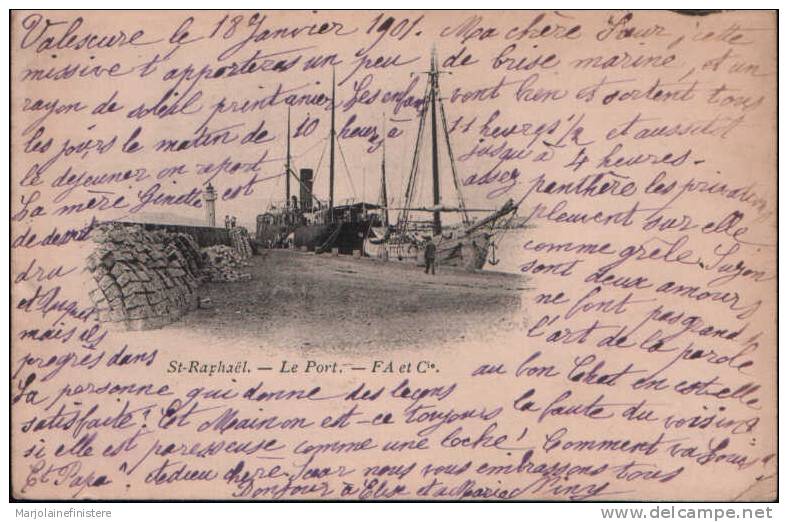 Valescure le 18 Janvier 1901. Ma chère Sœur, cette
missive t'apportera un peu de brise marine, et un
rayon de soleil printanier. Les enfants vont bien et sortent tous
les jours le matin de 10 heures à 11 heures 1/2 et aussitôt
le déjeuner on repart jusqu'à 4 heures.
La mère Ginette est assez panthère les privations
de dessert pleuvent sur elle
dru comme grêle. Suzon
et Roquet sont deux amours
mais ils ne font pas grand
progrès dans l'art de la parole
St-Raphaël. — Le Port. — FA et Cie.
au bon Chat en est-elle
La personne qui donne des leçons
satisfaite? Et Mainon est-ce toujours la faute du voisin
si elle est paresseuse comme une loche! Comment va Louis
Et Papa? Adieu chère Sœur nous vous embrassons tous
Bonjour à Elise et à Marie Niny
Marjolainefinistere
http://www.delcampe.net